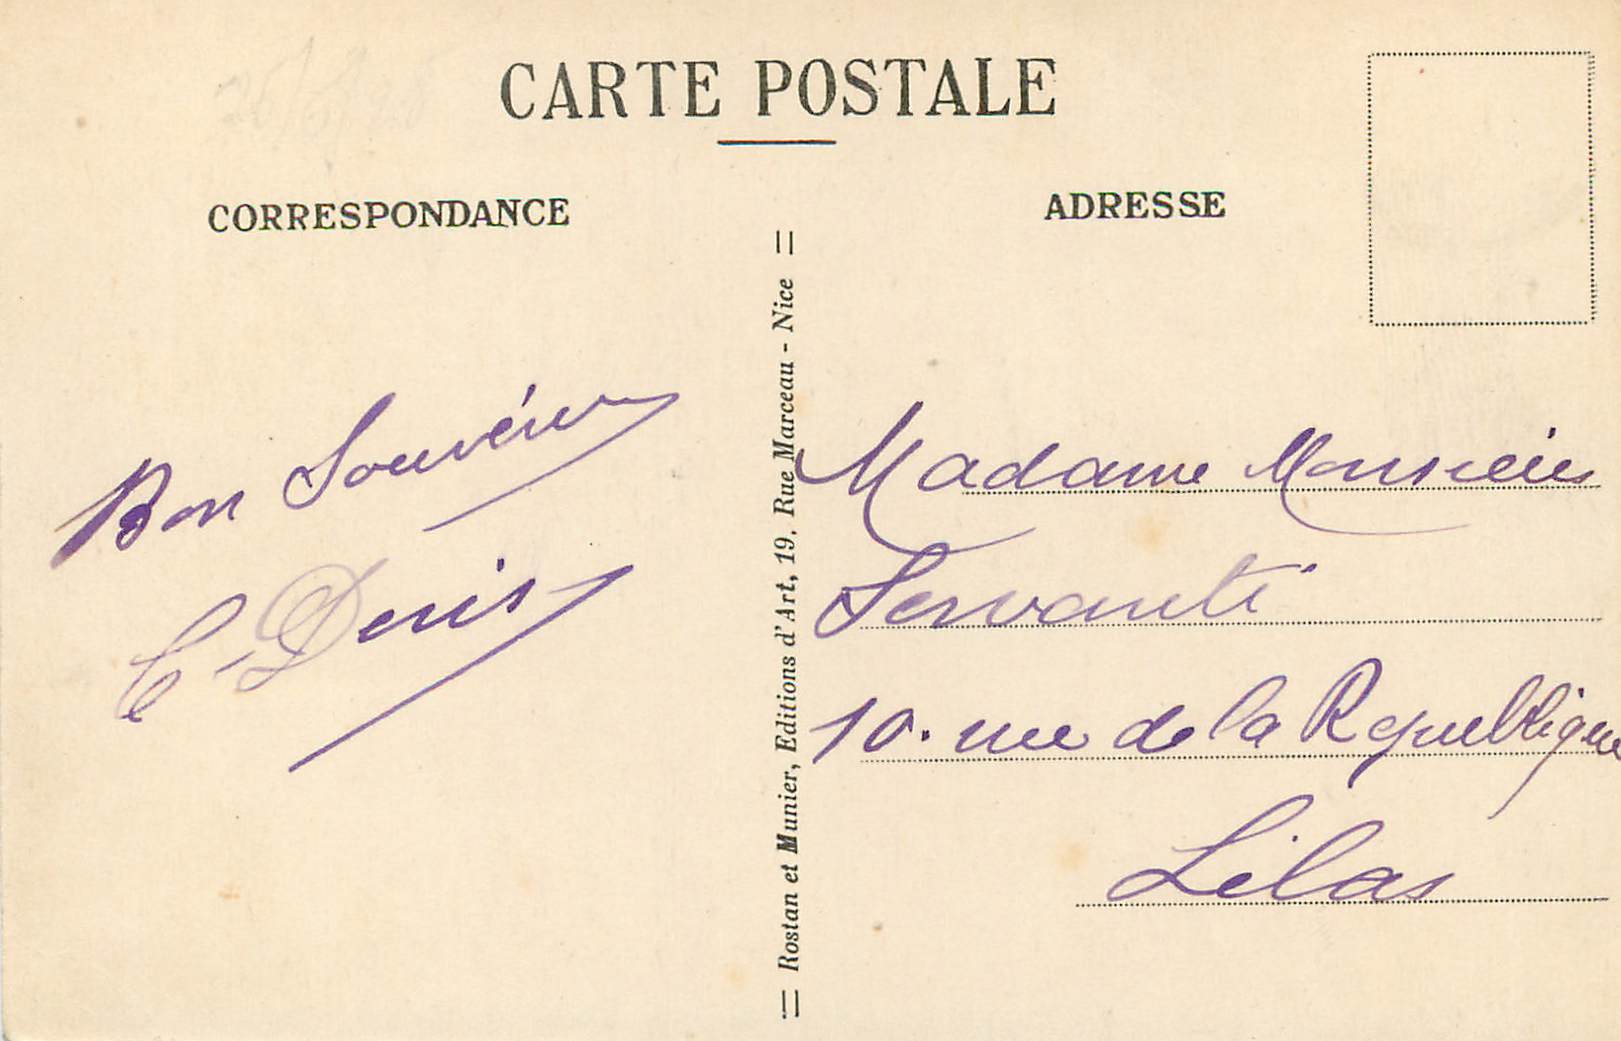 CARTE POSTALE
CORRESPONDANCE
Bon Souvenir
C. Denis
Rostan et Munier, Editions d'Art, 19, Rue Marceau - Nice
ADRESSE
Madame Monsieur
Servanti
10. rue de la Republique
Lilas